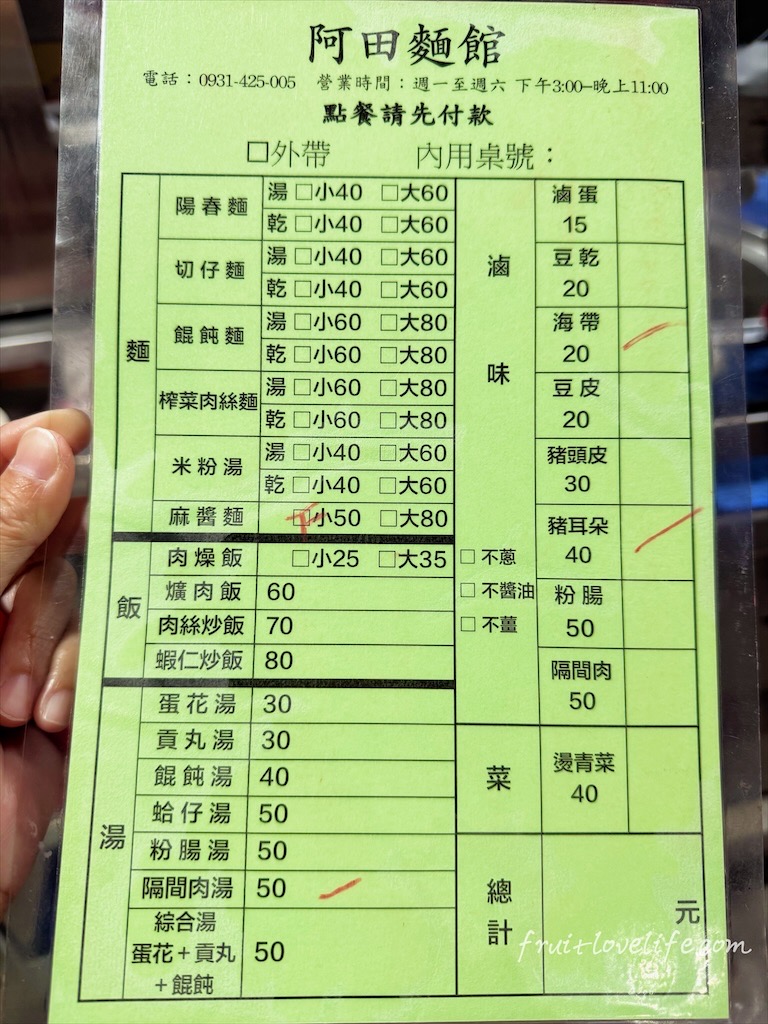 阿田麵館
電話：0931-425-005 營業時間：週一至週六 下午3:00–晚上11:00
點餐請先付款
□外帶 內用桌號：
麵
陽春麵
湯 □小40 □大60
乾 □小40 □大60
切仔麵
湯 □小40 □大60
乾 □小40 □大60
餛飩麵
湯 □小60 □大80
乾 □小60 □大80
榨菜肉絲麵
湯 □小60 □大80
乾 □小60 □大80
米粉湯
湯 □小40 □大60
乾 □小40 □大60
麻醬麵 □小50 □大80
飯
肉燥飯 □小25 □大35
爌肉飯 60
肉絲炒飯 70
蝦仁炒飯 80
湯
蛋花湯 30
貢丸湯 30
餛飩湯 40
蛤仔湯 50
粉腸湯 50
隔間肉湯 50
綜合湯
蛋花＋貢丸
＋餛飩
50
滷味
□ 不蔥
□ 不醬油
□ 不薑
滷蛋
15
豆乾
20
海帶
20
豆皮
20
豬頭皮
30
豬耳朵
40
粉腸
50
隔間肉
50
菜
燙青菜
40
總計
元
fruitlovelife.com